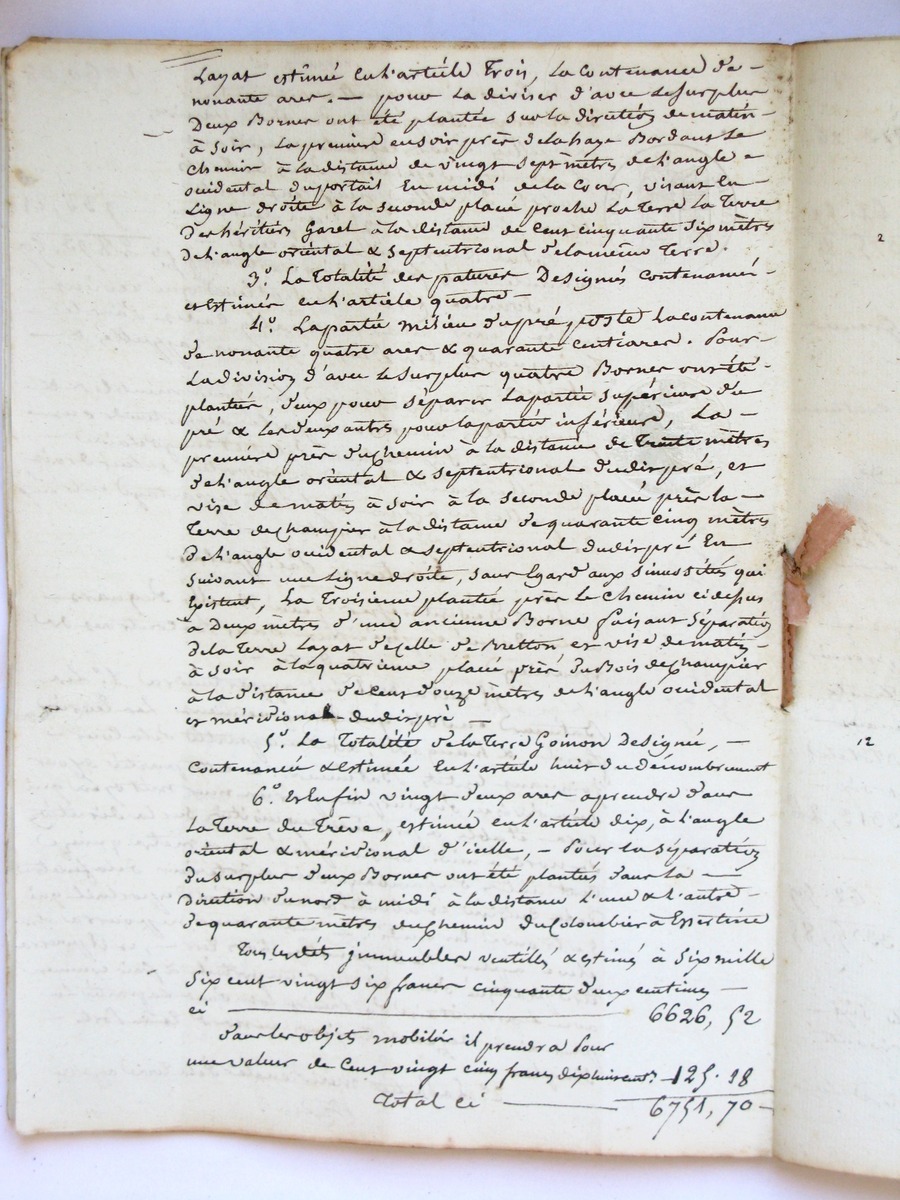 Layat estimée en l'article Trois, La Contenance de –
nonante ares. – pour La diviser d'avec Le Surplus
Deux Bornes ont été plantées sur la direction de matin –
à Soir, La première en soir près de la haye Bordant Le
Chemin à la distance de vingt sept mètres de l'angle
occidental du portail En midi de la Cour, visant En –
Ligne droite à la seconde placée proche La Terre La Terre
Des héritiers Garel à la distance de Cent cinquante six mètres
de l'angle oriental & Septentrional de la même Terre.
3.° La Totalité des patures Designés Contenancé –
et Estimés en l'article quatre –
4.° La partie milieu du pré La contenance
de nonante quatre ares & quarante centiares. Pour –
La division d'avec Le Surplus quatre Bornes ont été –
plantées, deux pour séparer La partie supérieure du
pré & Les deux autres pour la partie inférieure, La –
première près du Chemin à la distance de Trente mètres
de l'angle oriental & septentrional dudit pré, et
vise de matin à Soir à la seconde placée près la –
Terre de Champier à la distance de quarante cinq mètres
de l'angle occidental & septentrional dudit pré En
suivant une Ligne droite, sans Egard aux sinuosités qui
Existent, La Troisieme plantée près le Chemin ci dessus
à Deux mètres d'une ancienne Borne faisant Séparation
de la Terre Layat d'celle de Bretton et vise de matin –
à Soir à la quatrieme placée près du Bois de Champier
à la distance de Cent douze mètres de l'angle occidental
et méridional dudit pré –
5.° La Totalité de la Terre Goinon Designée, –
Contenancée & estimée En l'article huit du décombrement
6.° Et Enfin vingt deux ares a prendre dans
La Terre du Trève, estimée en l'article dix, à l'angle
oriental & méridional d'icelle, – Pour la séparation
du surplus deux Bornes ont été plantés dans la –
Direction du nord à midi à la distance l'une & l'autre –
de quarante mètres du Chemin Du Colombier à Essertine
Tous lesdits immeubles ventillés & estimés à Six mille
Six cent vingt six francs cinquante deux centimes –
ci 6626, 52
dans les objets mobilés il prendra Pour
une valeur de Cent vingt cinq francs dix huit cent.s 125. 18
Total Ci 6751, 70 –
2
12